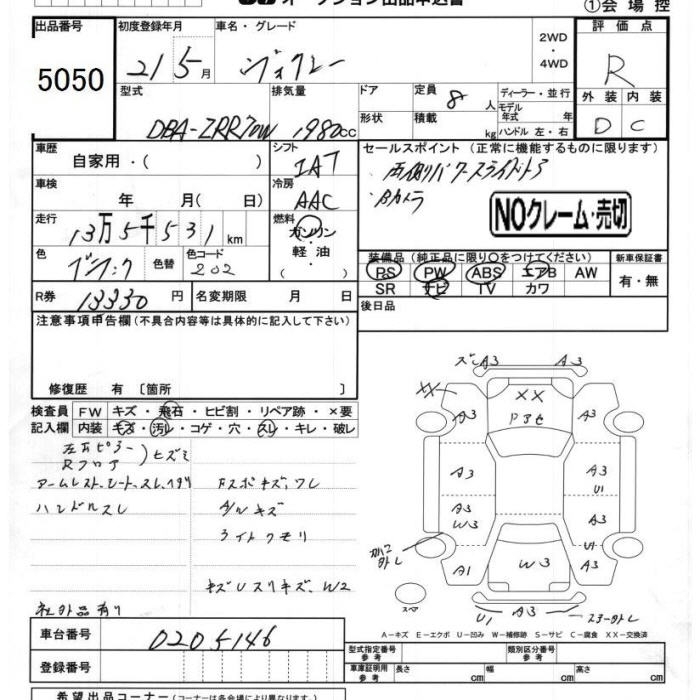 オークション出品申込書
①会場控
出品番号
5050
初度登録年月
21 5月
車名・グレード
ヴォクシー
2WD
・
4WD
評価点
R
外装 内装
D C
型式
DBA-ZRR70W
排気量
1980cc
ドア
形状
定員 8人
積載 kg
ディーラー・並行
モデル年式 年
ハンドル 左・右
車歴
自家用・( )
シフト
IAT
車検
年 月( 日)
冷房
AAC
走行
13万5千531km
燃料
ガソリン
軽油
( )
色
ブラック
色替
色コード
202
R券
13330円
名変期限 月 日
セールスポイント (正常に機能するものに限ります)
両側パワースライドドア
Bカメラ
NOクレーム・売切
装備品 (純正品に限り○をつけてください)
PS PW ABS エアB AW
SR ナビ TV カワ
新車保証書
有・無
後日品
注意事項申告欄 (不具合内容等は具体的に記入して下さい)
修復歴 有 [箇所 ]
検査員記入欄
FW キズ・飛石・ヒビ割・リペア跡・×要
内装 キズ・汚レ・コゲ・穴・スレ・キレ・破レ
左右ピラー
Rフロア
ヒズミ
アームレスト、シート、スレ、ヘタリ
ハンドルスレ
Fスポキズ、ワレ
A/Wキズ
ライトクモリ
キズUスリキズ、W2
社外品有り
ズレ A3 A3
XX
A3 XX A3
Pアセ
A3 A3
U1
A3
W3
A3
U1
A1 W3 A3
スペア
U1 A3
A－キズ E－エクボ U－凹み W－補修跡 S－サビ C－腐食 XX－交換済
車台番号
0205146
登録番号
型式指定番号
参考
類別区分番号
参考
車庫証明用
参考
長さ cm
幅 cm
高さ cm
希望出品コーナー (コーナーは各会場により異なります)